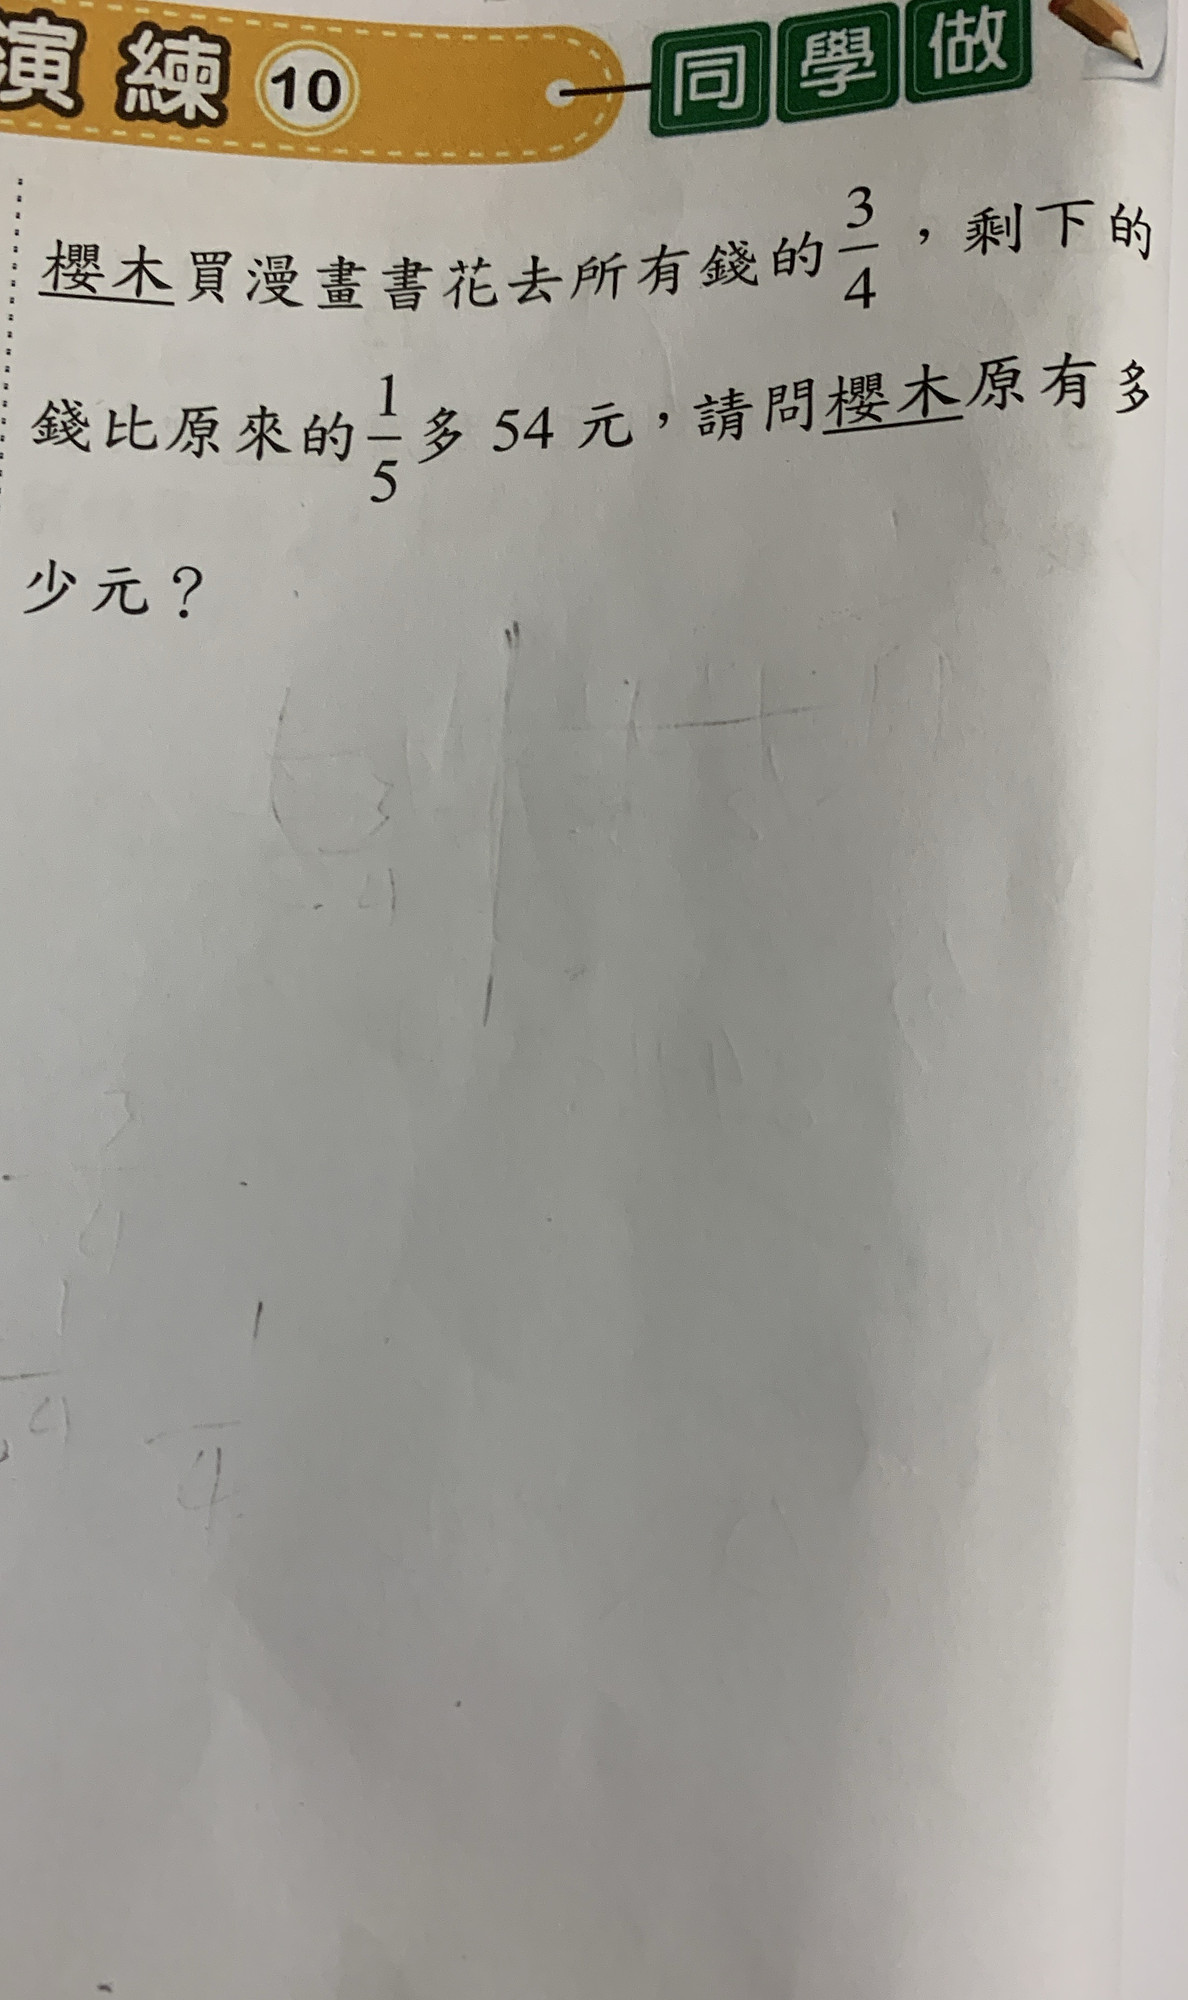 演練 10 同學做
櫻木買漫畫書花去所有錢的 3/4,剩下的
錢比原來的 1/5 多 54 元,請問櫻木原有多
少元?
3
4
1
4
1
4